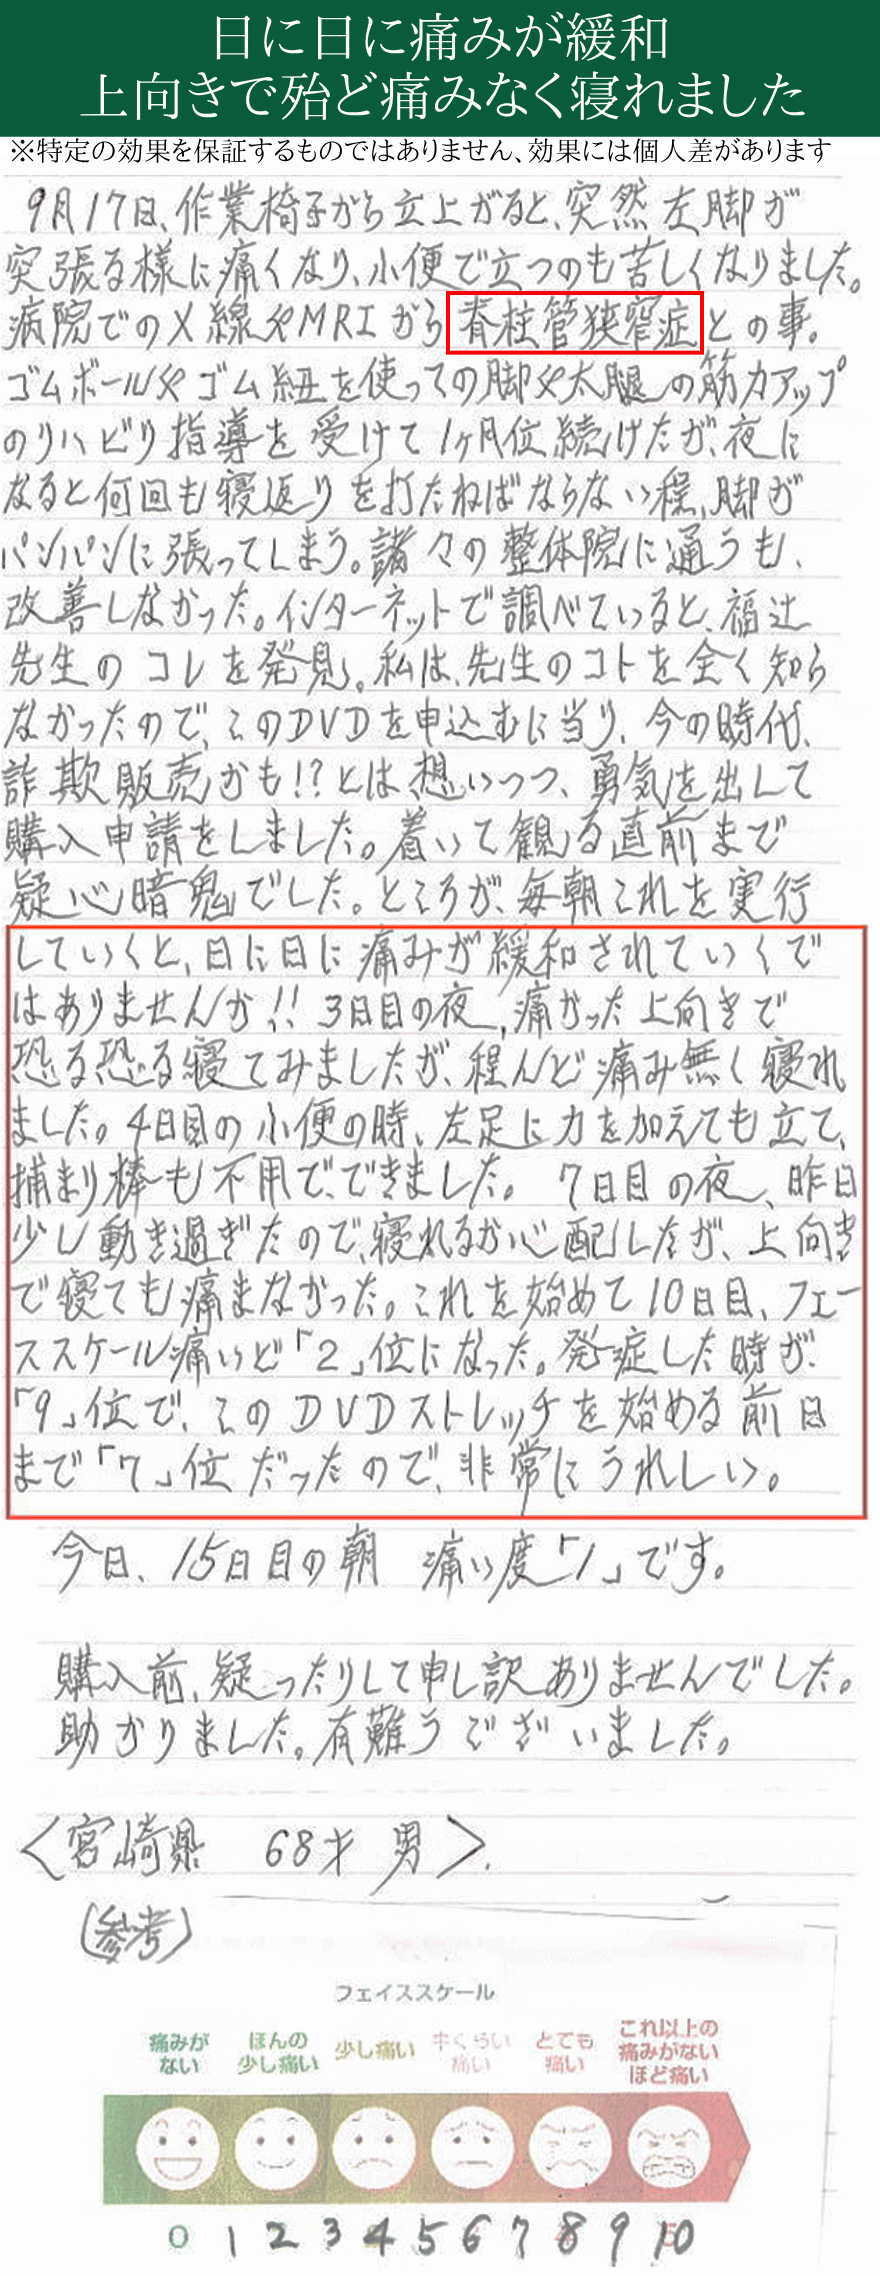 日に日に痛みが緩和
上向きで殆ど痛みなく寝れました
※特定の効果を保証するものではありません、効果には個人差があります
9月17日、作業椅子から立上がると、突然左脚が
突張る様に痛くなり、小便で立つのも苦しくなりました。
病院でのX線やMRIから脊柱管狭窄症との事。
ゴムボールやゴム紐を使っての脚や太腿の筋力アップ
のリハビリ指導を受けて1ヶ月位続けたが、夜に
なると何回も寝返りを打たねばならない程、脚が
パンパンに張ってしまう。諸々の整体院に通うも、
改善しなかった。インターネットで調べていると、福辻
先生のコレを発見。私は、先生のコトを全く知ら
なかったので、このDVDを申込むに当り、今の時代、
詐欺販売かも!?とは想いつつ、勇気を出して
購入申請をしました。着いて観る直前まで
疑心暗鬼でした。ところが、毎朝これを実行
していくと、日に日に痛みが緩和されていくで
はありませんか!! 3日目の夜、痛かった上向きで
恐る恐る寝てみましたが、程んど痛み無く寝れ
ました。4日目の小便の時、左足に力を加えても立て、
捕まり棒も不用で、できました。 7日目の夜、昨日
少し動き過ぎたので、寝れるか心配したが、上向き
で寝ても痛まなかった。これを始めて10日目、フェー
ススケール痛いど「2」位になった。発症した時が、
「9」位で、このDVDストレッチを始める前日
まで「7」位だったので、非常にうれしい。
今日、15日目の朝 痛い度「1」です。
購入前、疑ったりして申し訳ありませんでした。
助かりました。有難うございました。
<宮崎県 68才 男>.
(参考)
フェイススケール
痛みが
ない
ほんの
少し痛い
少し痛い
中くらい
痛い
とても
痛い
これ以上の
痛みがない
ほど痛い
0 1 2 3 4 5 6 7 8 9 10